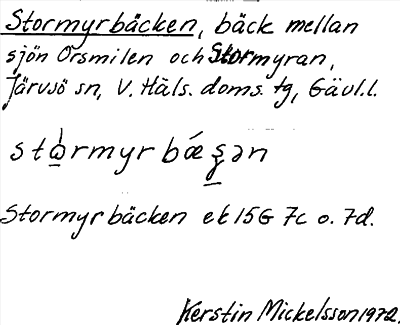 Stormyrbäcken, bäck mellan
sjön Orsmilen och Stormyran,
Järvsö sn, V. Häls. doms. tg, Gävl.l.
stὼrmyrbǽʂ̱ən
Stormyrbäcken ek 15G 7c o. 7d.
Kerstin Mickelsson 1972.